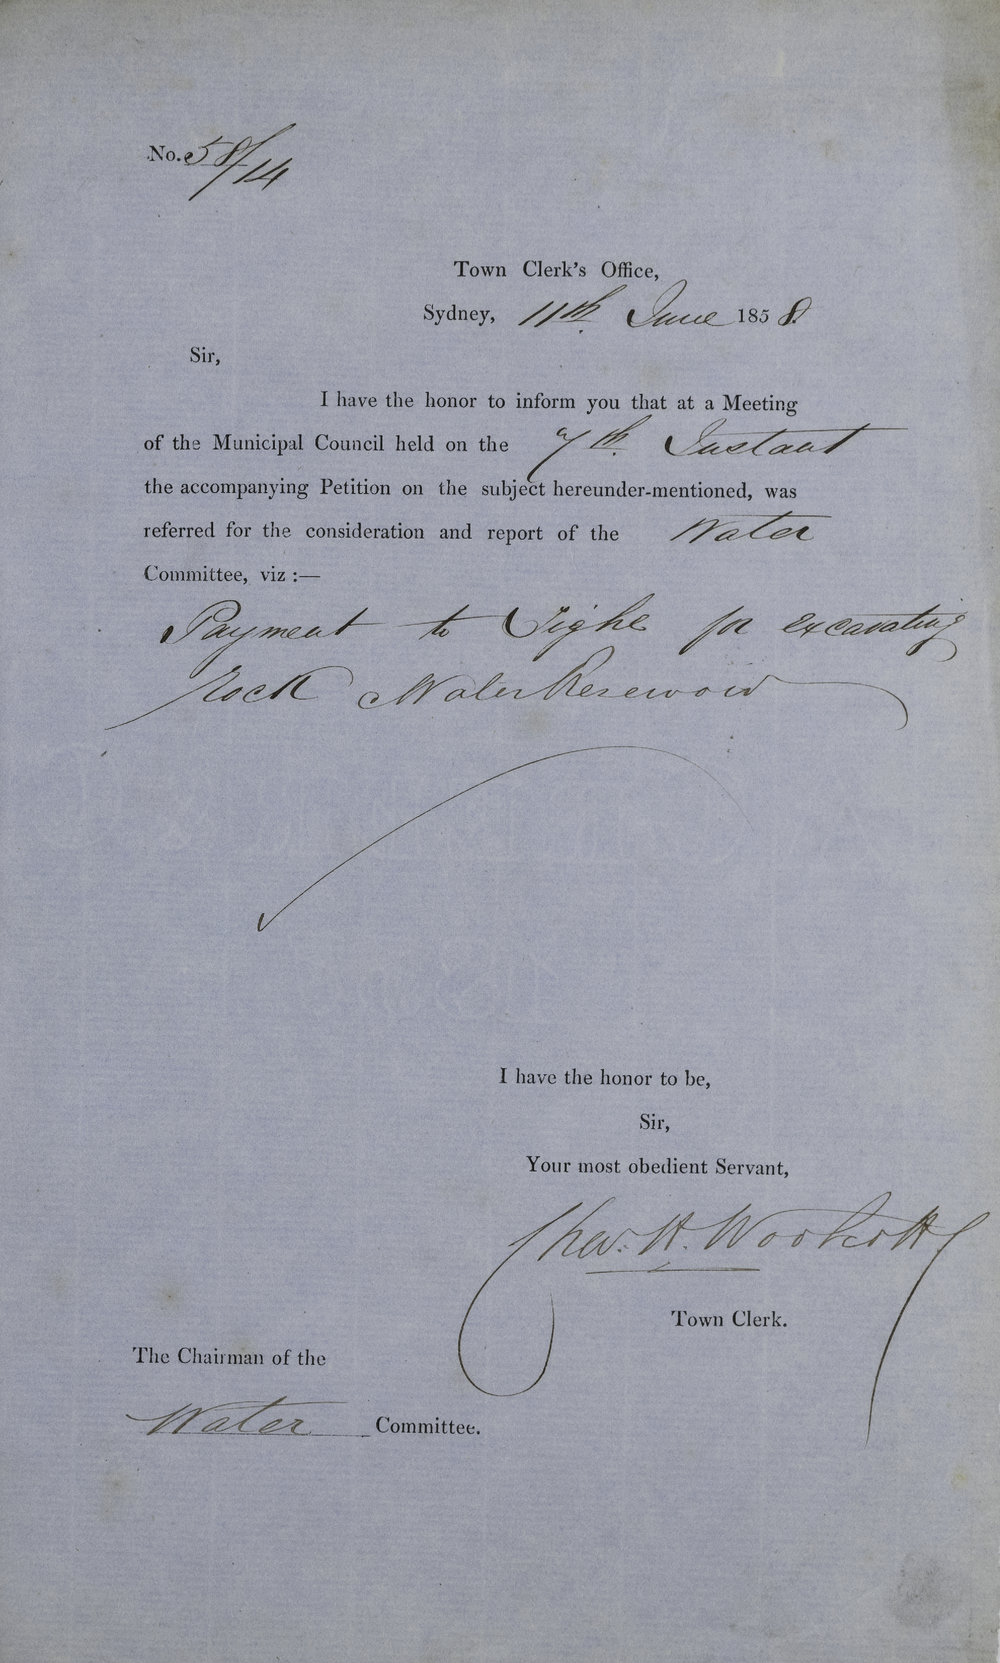 No. 58/14
Town Clerk's Office,
Sydney, 11th June 1858.
Sir,
I have the honor to inform you that at a Meeting
of the Municipal Council held on the 7th. Instant
the accompanying Petition on the subject hereunder-mentioned, was
referred for the consideration and report of the Water
Committee, viz :—
Payment to Tighe for excavating
rock Water Reservoir
I have the honor to be,
Sir,
Your most obedient Servant,
Chas. H. Woolcott
Town Clerk.
The Chairman of the
Water Committee.